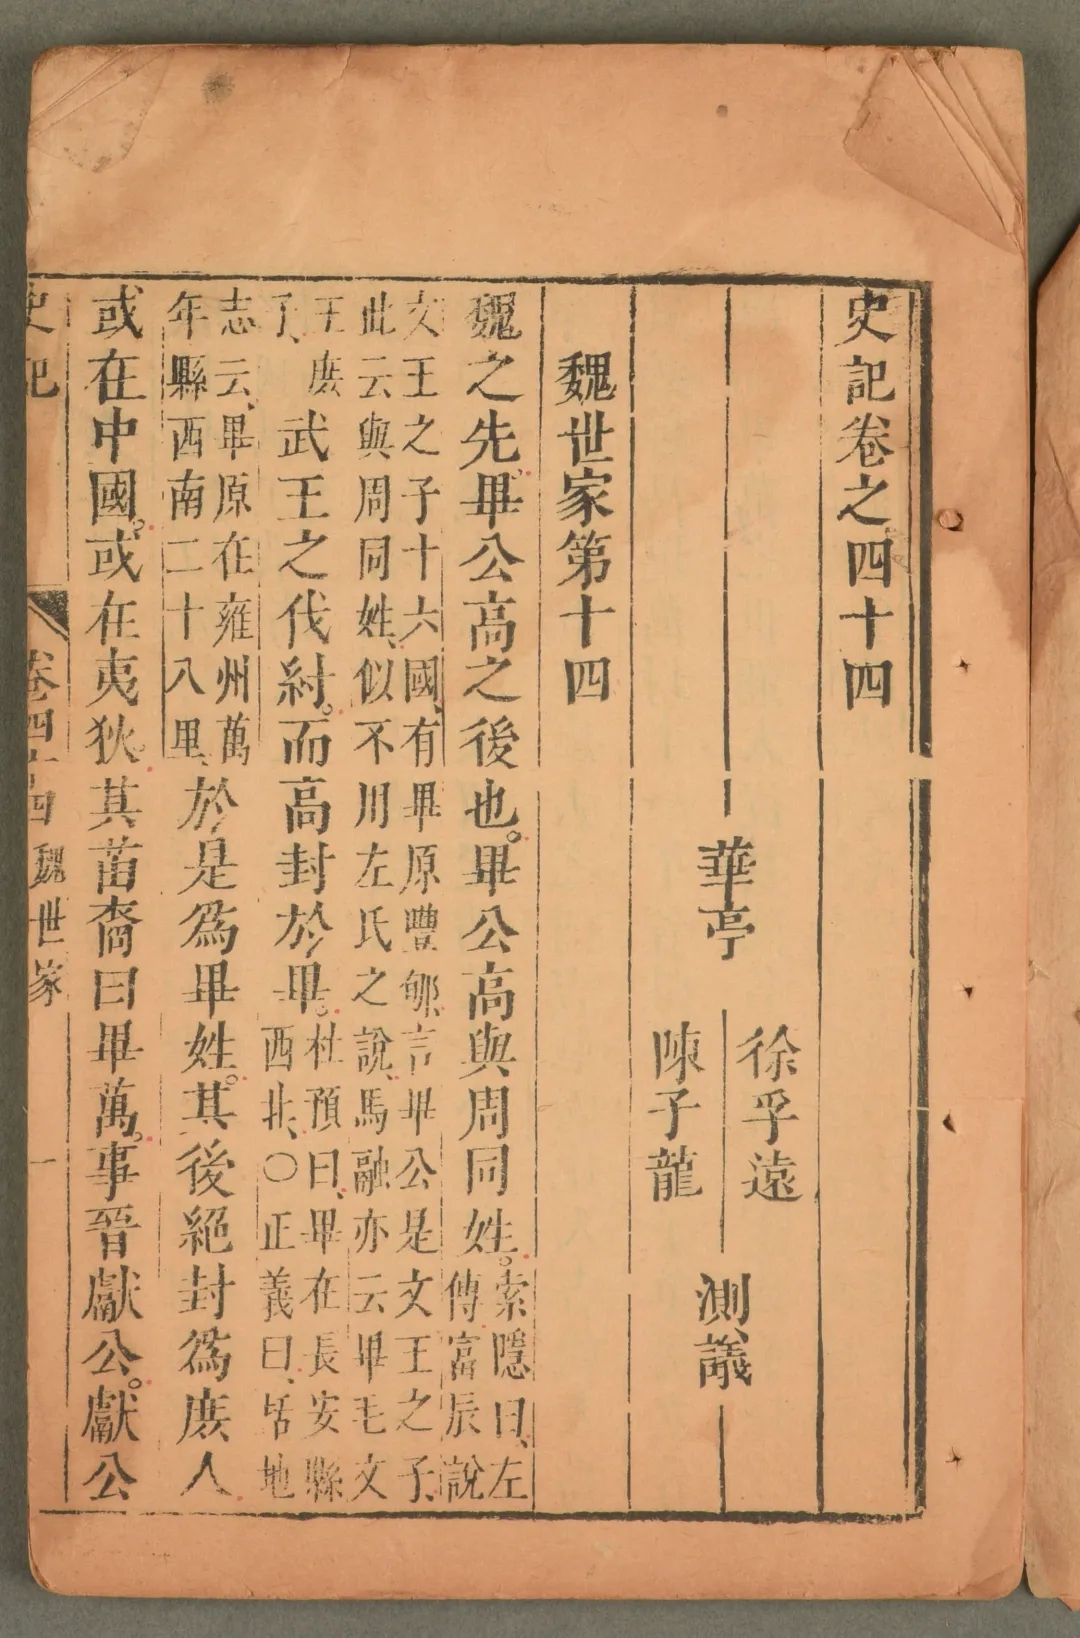 史記卷之四十四
華亭
徐孚遠
陳子龍
測議
魏世家第十四
魏之先。畢公高之後也。畢公高與周同姓。索隱曰、左
傳富辰說
文王之子十六國、有畢原豐郇、言畢公是文王之子、
此云與周同姓、似不用左氏之說、馬融亦云畢毛文
王庶
子、
武王之伐紂。而高封於畢。杜預曰、畢在長安縣
西北、○正義曰、括地
志云、畢原在雍州萬
年縣西南二十八里、
於是爲畢姓。其後絕封爲庶人
或在中國。或在夷狄。其苗裔曰畢萬。事晉獻公。獻公
史記
卷四十四
魏世家
一